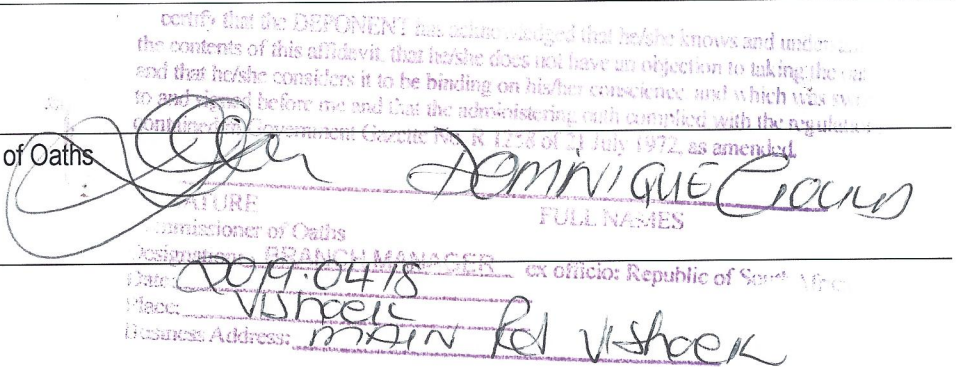 certify that the DEPONENT has acknowledged that he/she knows and
the contents of this affidavit, that he/she does not have an objection to taking the
and that he/she considers it to be binding on his/her conscience, and which was
to and signed before me and that the administering oath complied with the
Government Gazette No. R 1258 of 21 July 1972, as amended.
of Oaths DOMINIQUE
ATURE FULL NAMES
mmissioner of Oaths
BRANCH MANAGER ex officio: Republic of
Date: 2019.04.18
Place: Vishoek
Business Address: MAIN Rd Vishoek